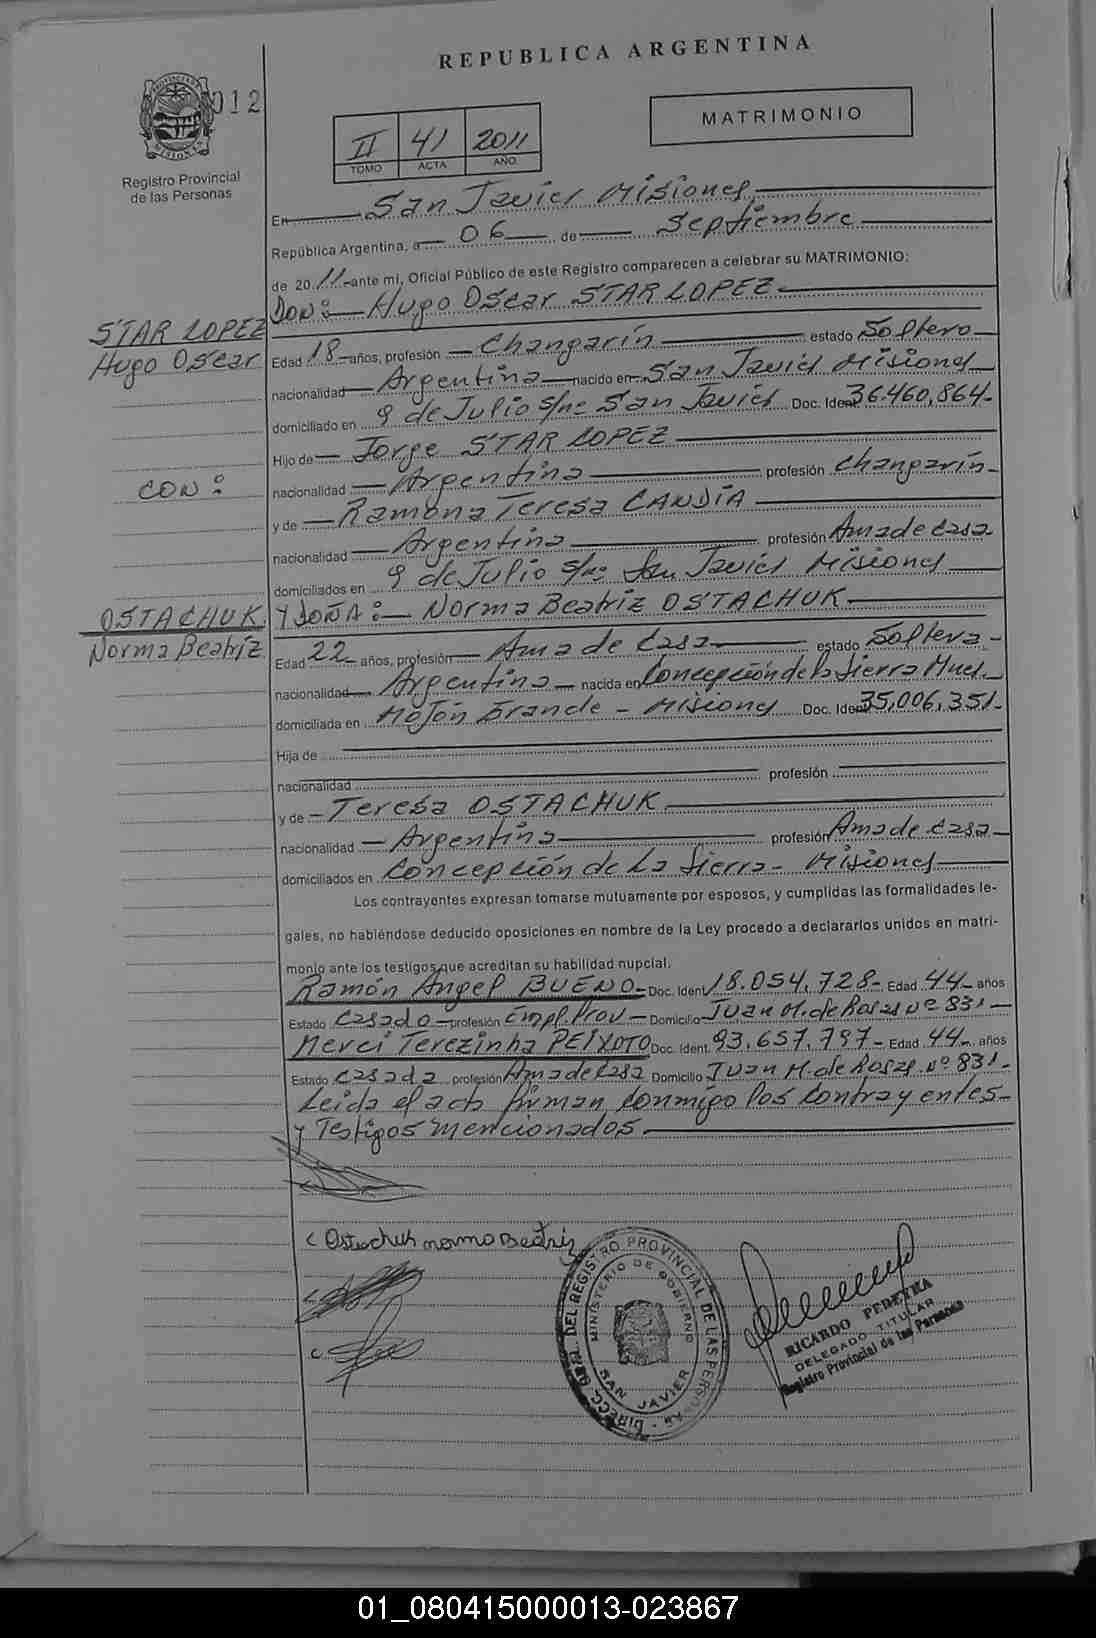 REPUBLICA ARGENTINA
012
Registro Provincial
de las Personas
II 41 2011
TOMO ACTA AÑO
MATRIMONIO
En San Javier Misiones
República Argentina, a 06 de Septiembre
de 2011 ante mi, Oficial Público de este Registro comparecen a celebrar su MATRIMONIO:
DON: Hugo Oscar STAR LOPEZ
STAR LOPEZ
Hugo Oscar
Edad 18 años, profesión Changarín estado Soltero
nacionalidad Argentina nacido en San Javier Misiones
domiciliado en 9 de Julio s/nº San Javier Doc. Ident. 36.460.864
Hijo de Jorge STAR LOPEZ
CON:
nacionalidad Argentina profesión Changarín
y de Ramona Teresa CANDÍA
nacionalidad Argentina profesión Ama de Casa
domiciliados en 9 de Julio s/nº San Javier Misiones
OSTACHUK
Norma Beatríz
Y DOÑA: Norma Beatríz OSTACHUK
Edad 22 años, profesión Ama de Casa estado Soltera
nacionalidad Argentina nacida en Concepción de la Sierra Mnes
domiciliada en Mojón Grande - Misiones Doc. Ident. 35,006,351
Hija de
nacionalidad profesión
y de Teresa OSTACHUK
nacionalidad Argentina profesión Ama de Casa
domiciliados en Concepción de La Sierra - Misiones
Los contrayentes expresan tomarse mutuamente por esposos, y cumplidas las formalidades le-
gales, no habiéndose deducido oposiciones en nombre de la Ley procedo a declararlos unidos en matri-
monio ante los testigos que acreditan su habilidad nupcial.
Ramón Angel BUENO Doc. Ident. 18.054.728 Edad 44 años
Estado Casado profesión Empl. Prov Domicilio Juan M. de Rosas nº 831
Merci Terezinha PEIXOTO Doc. Ident. 93.657.797 Edad 44 años
Estado Casada profesión Ama de Casa Domicilio Juan M. de Rosas Nº 831
Leida el acta firman conmigo los contrayentes
y Testigos mencionados.
Ostachuk norma Beatriz
DIRECC. GRAL. DEL REGISTRO PROVINCIAL DE LAS PERSONAS
MINISTERIO DE GOBIERNO
SAN JAVIER
RICARDO PEREYRA
DELEGADO TITULAR
Registro Provincial de las Personas
01_080415000013-023867